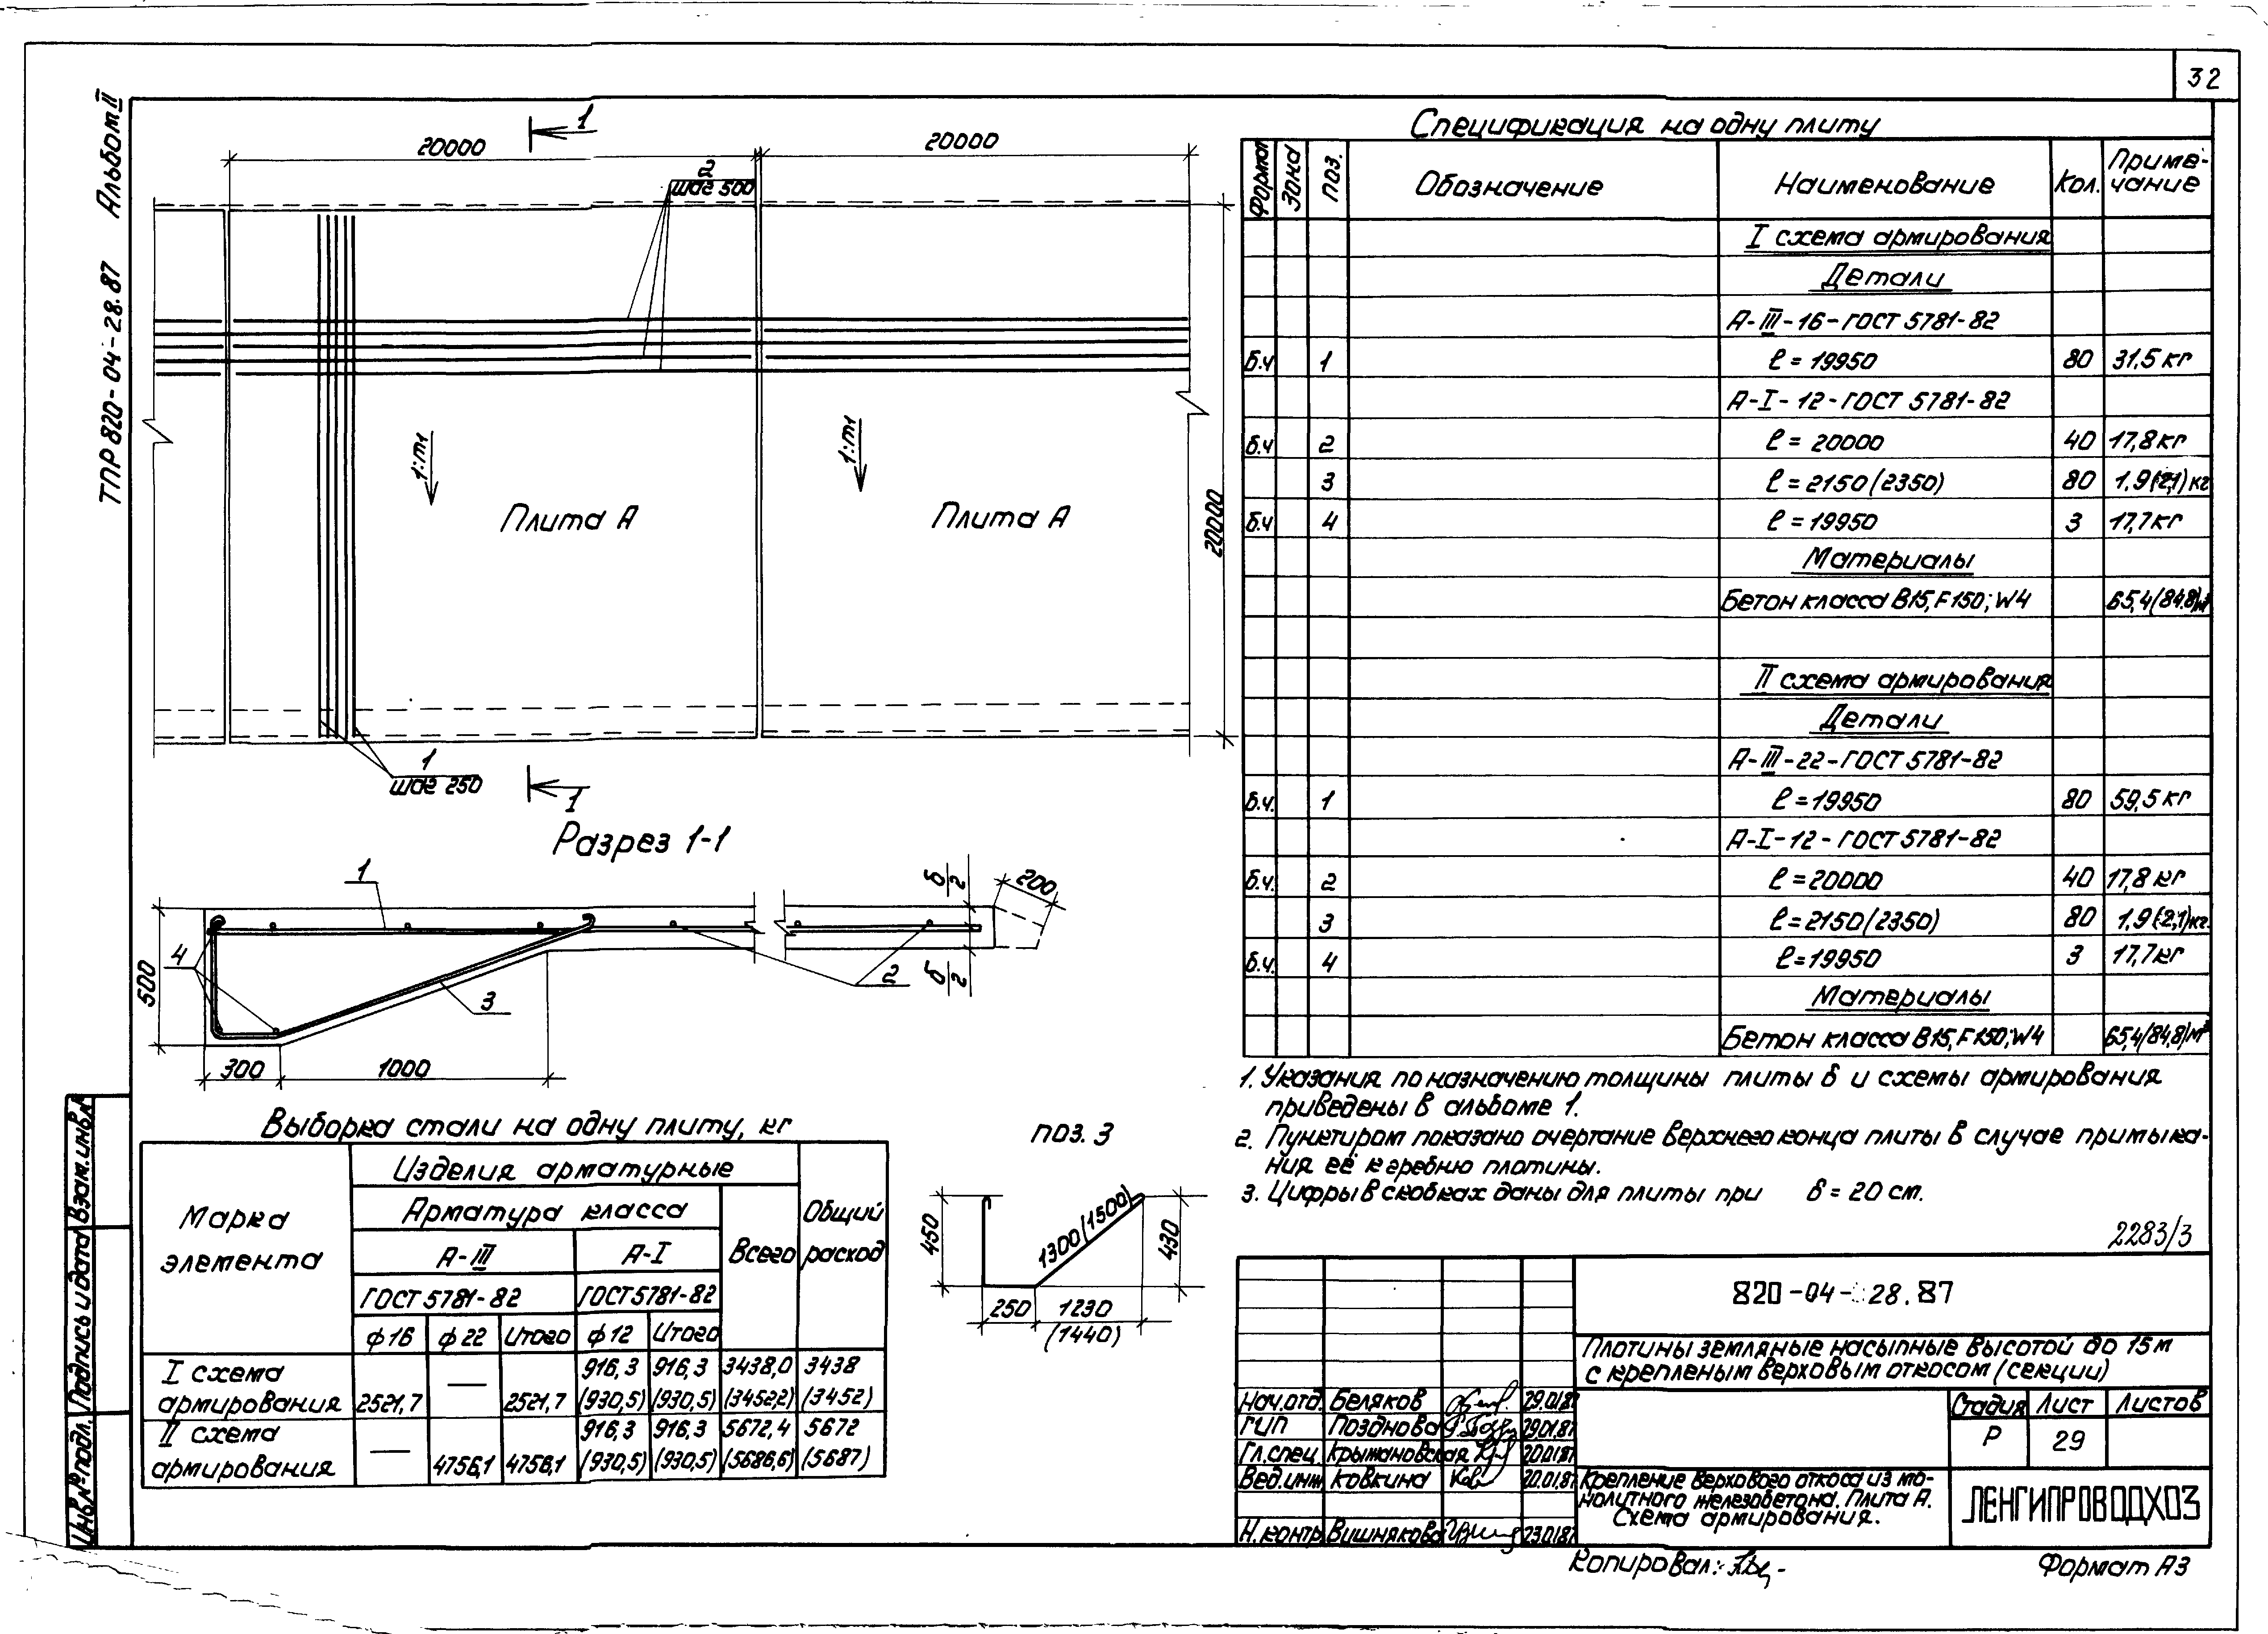 32
ТПР 820-04-28.87 Альбом II
20000
1
20000
2
шаг 500
1:m1
1:m1
Плита А
Плита А
20000
1
шаг 250
1
Разрез 1-1
1
δ/2
200
4
500
3
2
δ/2
300
1000
Спецификация на одну плиту
Формат Зона Поз. Обозначение Наименование Кол. Приме-
чание
I схема армирования
Детали
А-III-16-ГОСТ 5781-82
б.ч 1 ℓ = 19950 80 31,5 кг
А-I-12-ГОСТ 5781-82
б.ч 2 ℓ = 20000 40 17,8 кг
3 ℓ = 2150 (2350) 80 1,9(2,1) кг
б.ч 4 ℓ = 19950 3 17,7 кг
Материалы
Бетон класса В15, F150; W4 65,4(84,8)м³
II схема армирования
Детали
А-III-22-ГОСТ 5781-82
б.ч. 1 ℓ = 19950 80 59,5 кг
А-I-12-ГОСТ 5781-82
б.ч. 2 ℓ = 20000 40 17,8 кг
3 ℓ = 2150 (2350) 80 1,9(2,1) кг.
б.ч. 4 ℓ = 19950 3 17,7 кг
Материалы
Бетон класса В15, F150; W4 65,4(84,8)м³
1. Указания по назначению толщины плиты δ и схемы армирования
приведены в альбоме 1.
2. Пунктиром показано очертание верхнего конца плиты в случае примыка-
ния её к гребню плотины.
3. Цифры в скобках даны для плиты при δ = 20 см.
2283/3
Выборка стали на одну плиту, кг
Марка
элемента
Изделия арматурные
Арматура класса
Всего
Общий
расход
А-III А-I
ГОСТ 5781-82 ГОСТ 5781-82
ф16 ф22 Итого ф12 Итого
I схема 916,3 916,3 3438,0 3438
армирования 2521,7 — 2521,7 (930,5) (930,5) (3452,2) (3452)
II схема 916,3 916,3 5672,4 5672
армирования — 4756,1 4756,1 (930,5) (930,5) (5686,6) (5687)
поз. 3
450
1300(1500)
430
250 1230
(1440)
820-04-28.87
Плотины земляные насыпные высотой до 15 м
с крепленым верховым откосом (секции)
Нач.отд. Беляков 29.01.87
ГИП Позднова 29.01.87
Гл.спец. Крыжановская 20.01.87
Вед.инж Ковкина 20.01.87
Н.контр. Вишнякова 23.01.87
Стадия Лист Листов
Р 29
Крепление верхового откоса из мо-
нолитного железобетона. Плита А.
Схема армирования.
ЛЕНГИПРОВОДХОЗ
Взам.инв.№
Подпись и дата
Инв.№ подл.
Копировал:
Формат А3